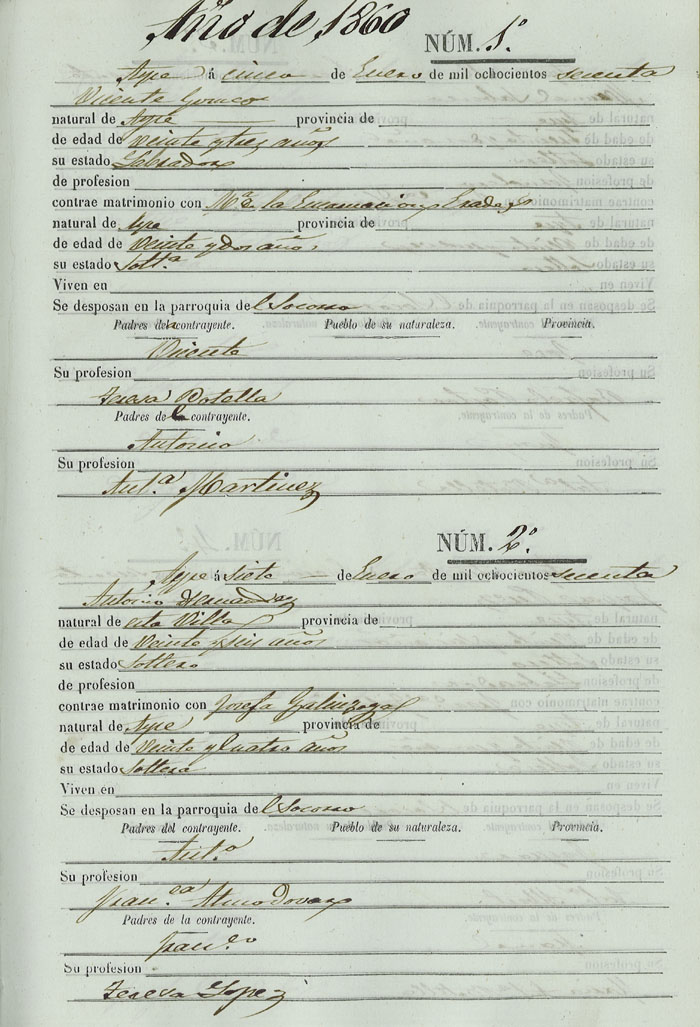 Año de 1860
NÚM. 1.º
Aspe á cinco de Enero de mil ochocientos sesenta
Vicente
natural de Aspe provincia de
de edad de veinte y tres años
su estado Labrador
de profesion
contrae matrimonio con M.ª de la Encarnacion
natural de Aspe provincia de
de edad de veinte y dos años
su estado Solt.ª
Viven en
Se desposan en la parroquia del Socorro
Padres del contrayente. Pueblo de su naturaleza. Provincia.
Vicente
Su profesion
Teresa Botella
Padres de la contrayente.
Antonio
Su profesion
Ant.ª Martinez
NÚM. 2.º
Aspe á siete de Enero de mil ochocientos sesenta
Antonio Hernandez
natural de esta Villa provincia de
de edad de veinte y seis años
su estado Soltero
de profesion
contrae matrimonio con Josefa Galinzoga
natural de Aspe provincia de
de edad de veinte y cuatro años
su estado Soltera
Viven en
Se desposan en la parroquia del Socorro
Padres del contrayente. Pueblo de su naturaleza. Provincia.
Ant.º
Su profesion
Fran.ca Almodovar
Padres de la contrayente.
Fran.co
Su profesion
Teresa Lopez